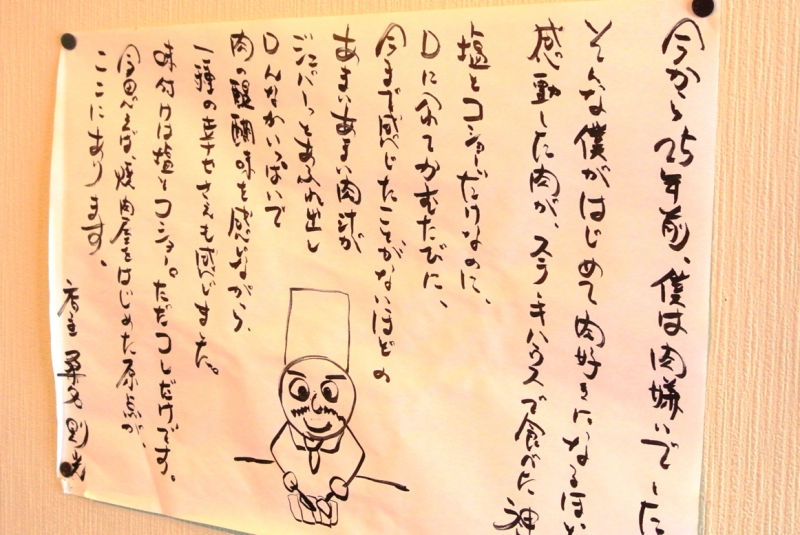 今から25年前、僕は肉嫌いでした
そんな僕がはじめて肉好きになるほど
感動した肉が、ステーキハウスで食べた神
塩とコショーだけなのに、
口に入れてかむたびに、
今まで感じたことがないほどの
あまいあまい肉汁が
じゅわーっとあふれ出し
口んなかいっぱいで
肉の醍醐味を感じながら、
一種の幸せさえも感じました。
味付けは塩とコショー。ただコレだけです。
今思えば、焼肉屋をはじめた原点が、
ここにあります。
店主